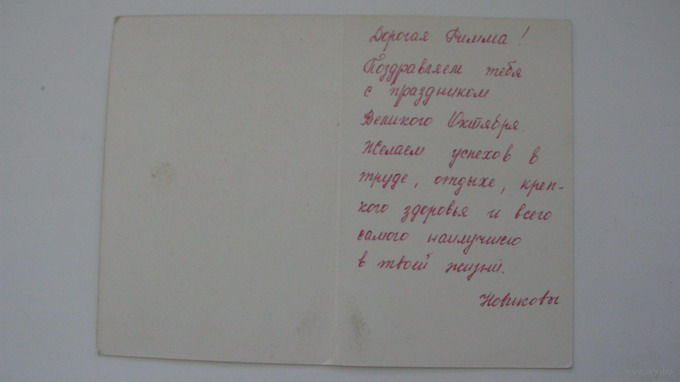 Дорогая Римма!
Поздравляем тебя
с праздником
Великого Октября.
Желаем успехов в
труде, отдыхе, креп-
кого здоровья и всего
самого наилучшего
в твоей жизни.
Новиковы